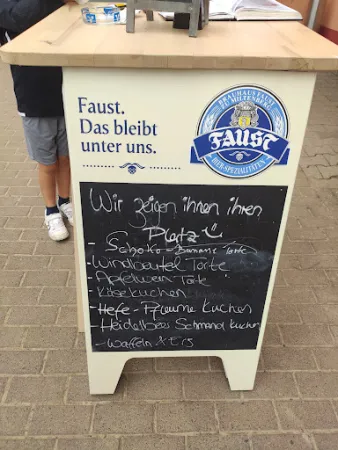 Faust.
Das bleibt
unter uns.
BRAUHAUS FAUST
ZU MILTENBERG
FAUST
BIER-SPEZIALITÄTEN
Wir zeigen ihnen ihren
Platz
- Schoko-Banane Torte
- Windbeutel Torte
- Apfelwein Torte
- Käsekuchen
- Hefe-Pflaume Kuchen
- Heidelbeer Schmand Kuchen
- Waffeln